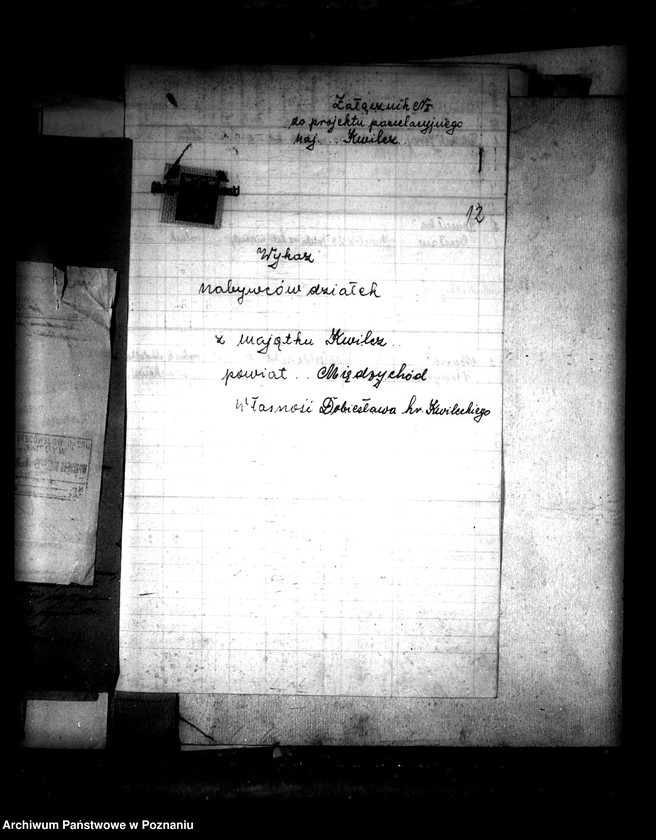 Załącznik Nr
do projektu parcelacyjnego
maj. . . Kwilcz. .
12
Wykaz
nabywców działek
z majątku Kwilcz. .
powiat . . Międzychód
Własność Dobiesława hr. Kwileckiego
Archiwum Państwowe w Poznaniu